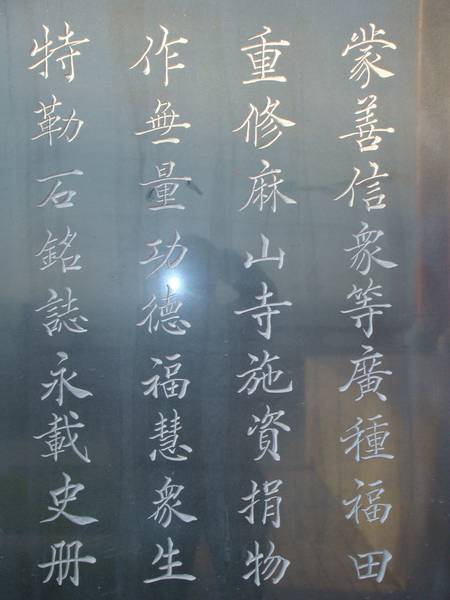 蒙善信衆等廣種福田
重修麻山寺施資捐物
作無量功德福慧衆生
特勒石銘誌永載史册